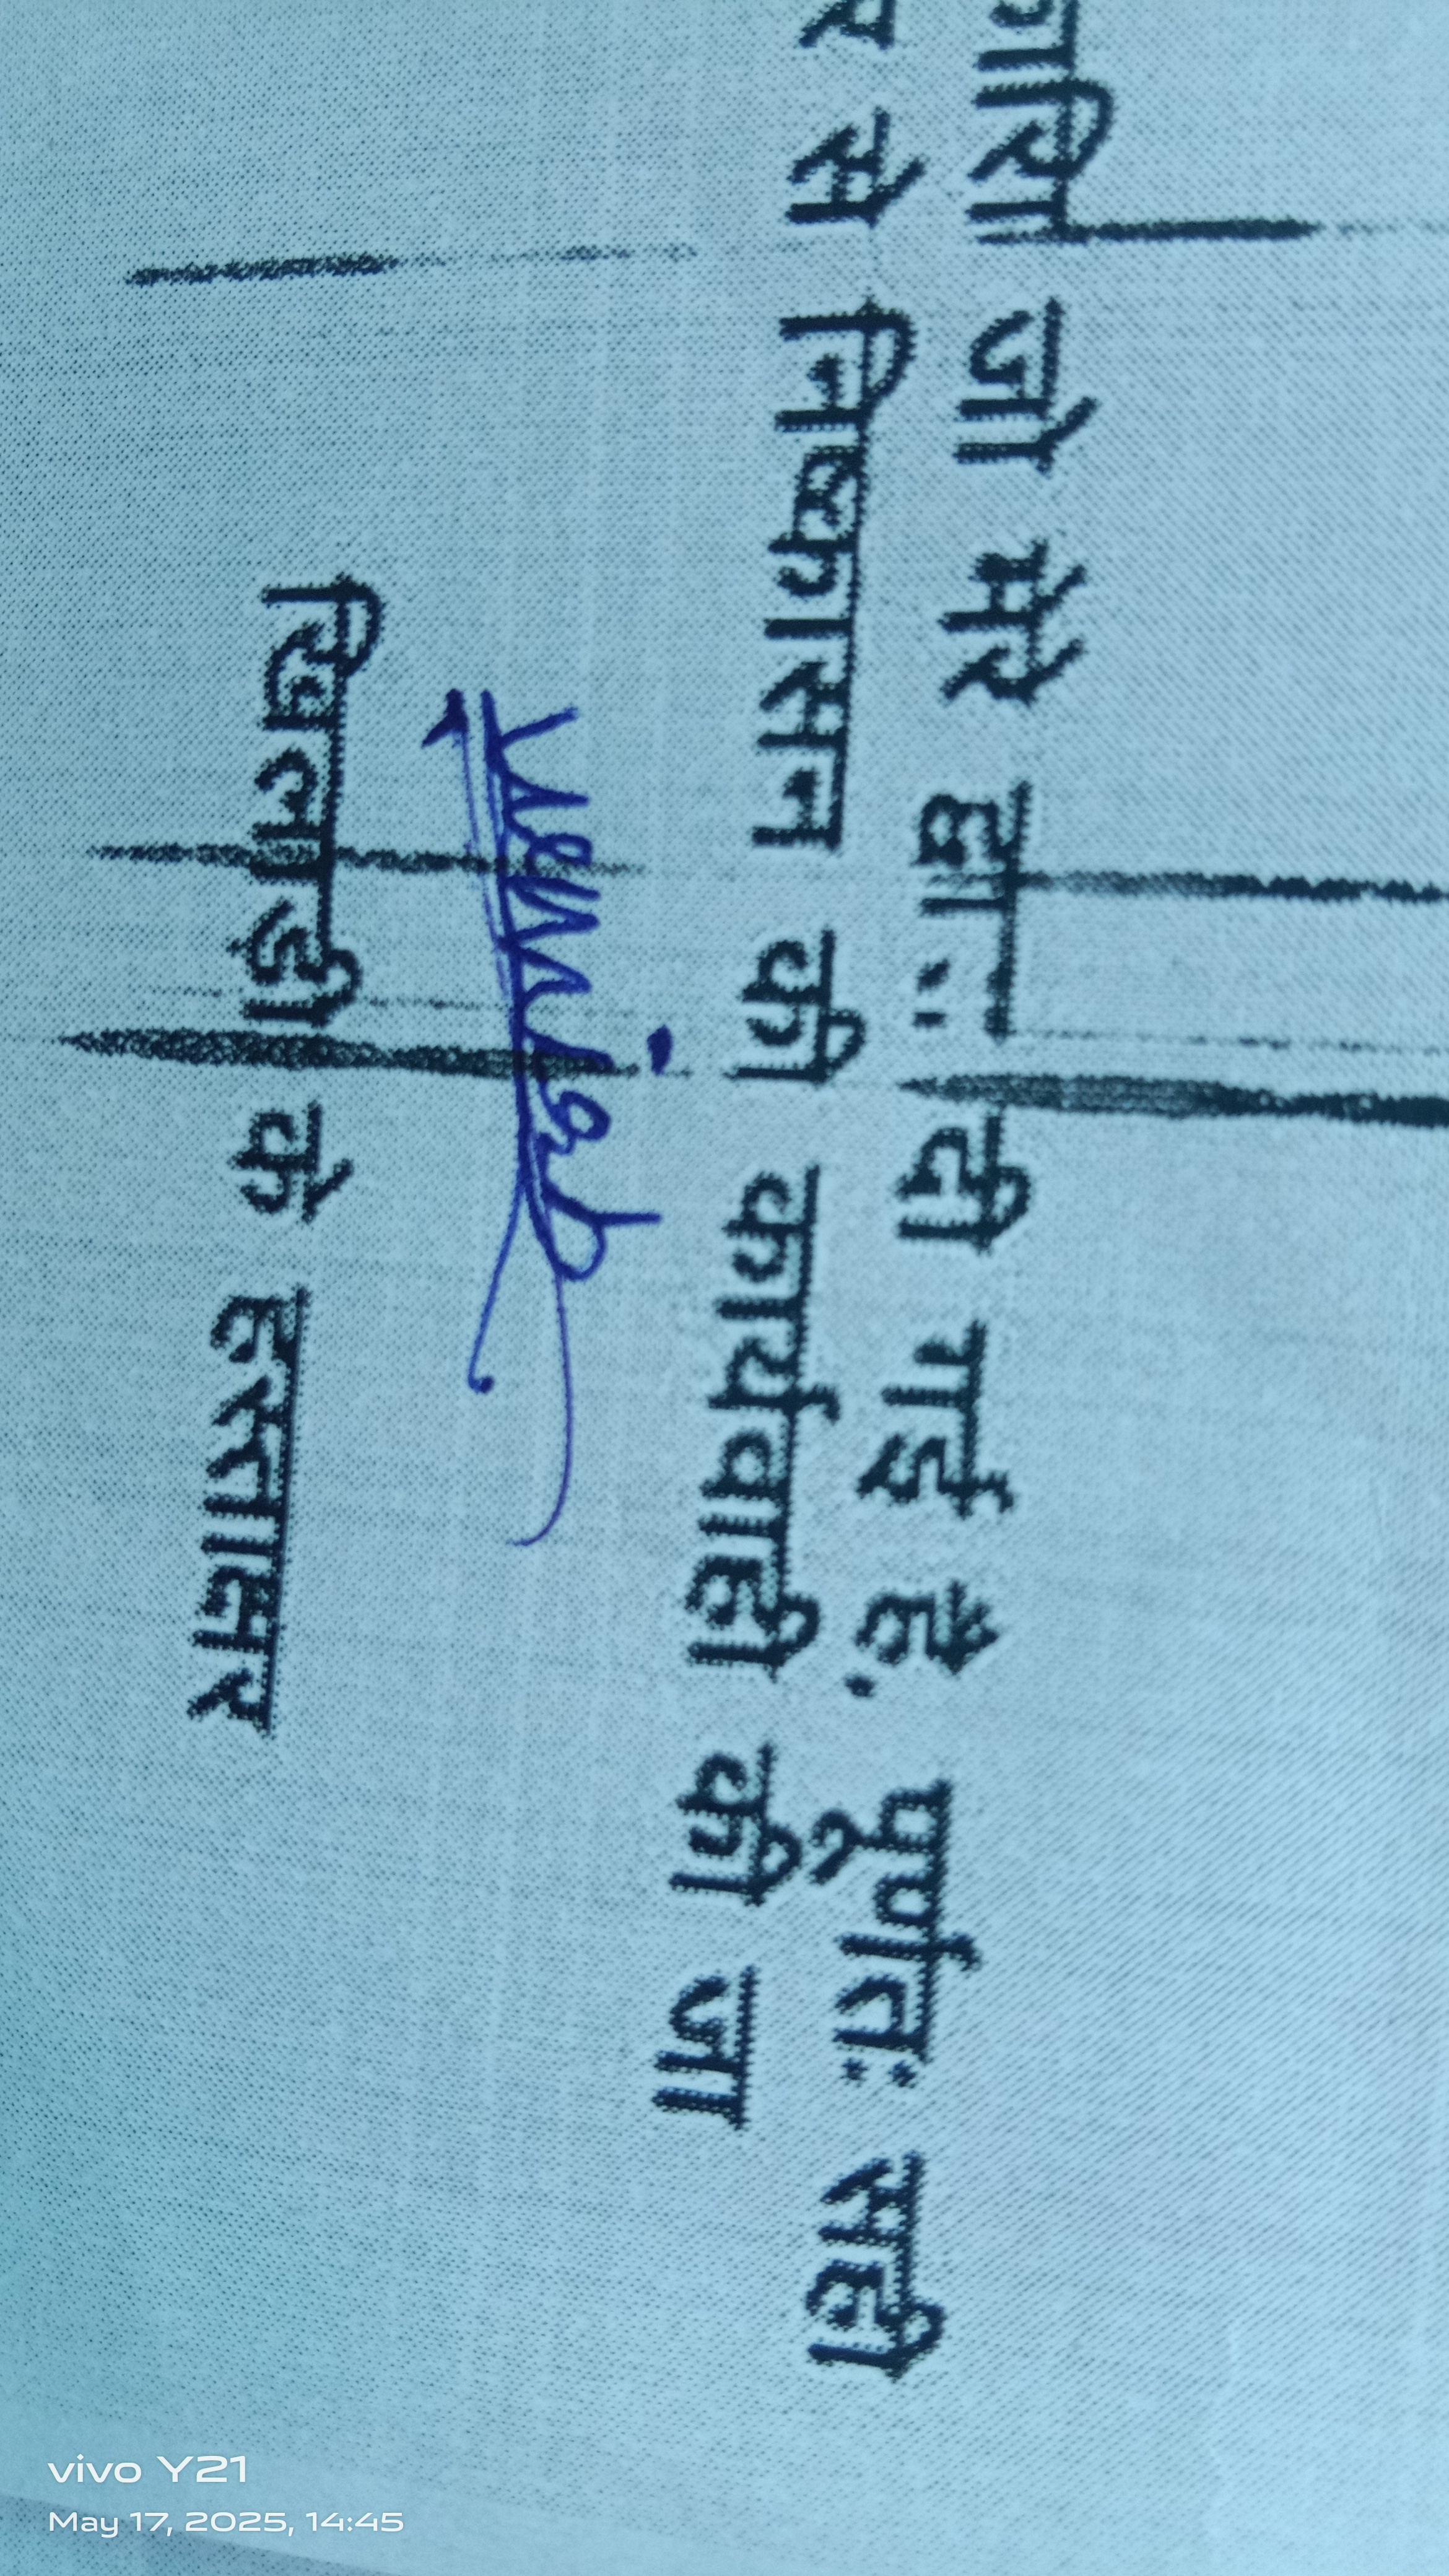 जो मेरे दी गई है. पूर्णतः सही
से निष्कासन की कार्यवाही की जा
खिलाड़ी के हस्ताक्षर
vivo Y21
May 17, 2025, 14:45